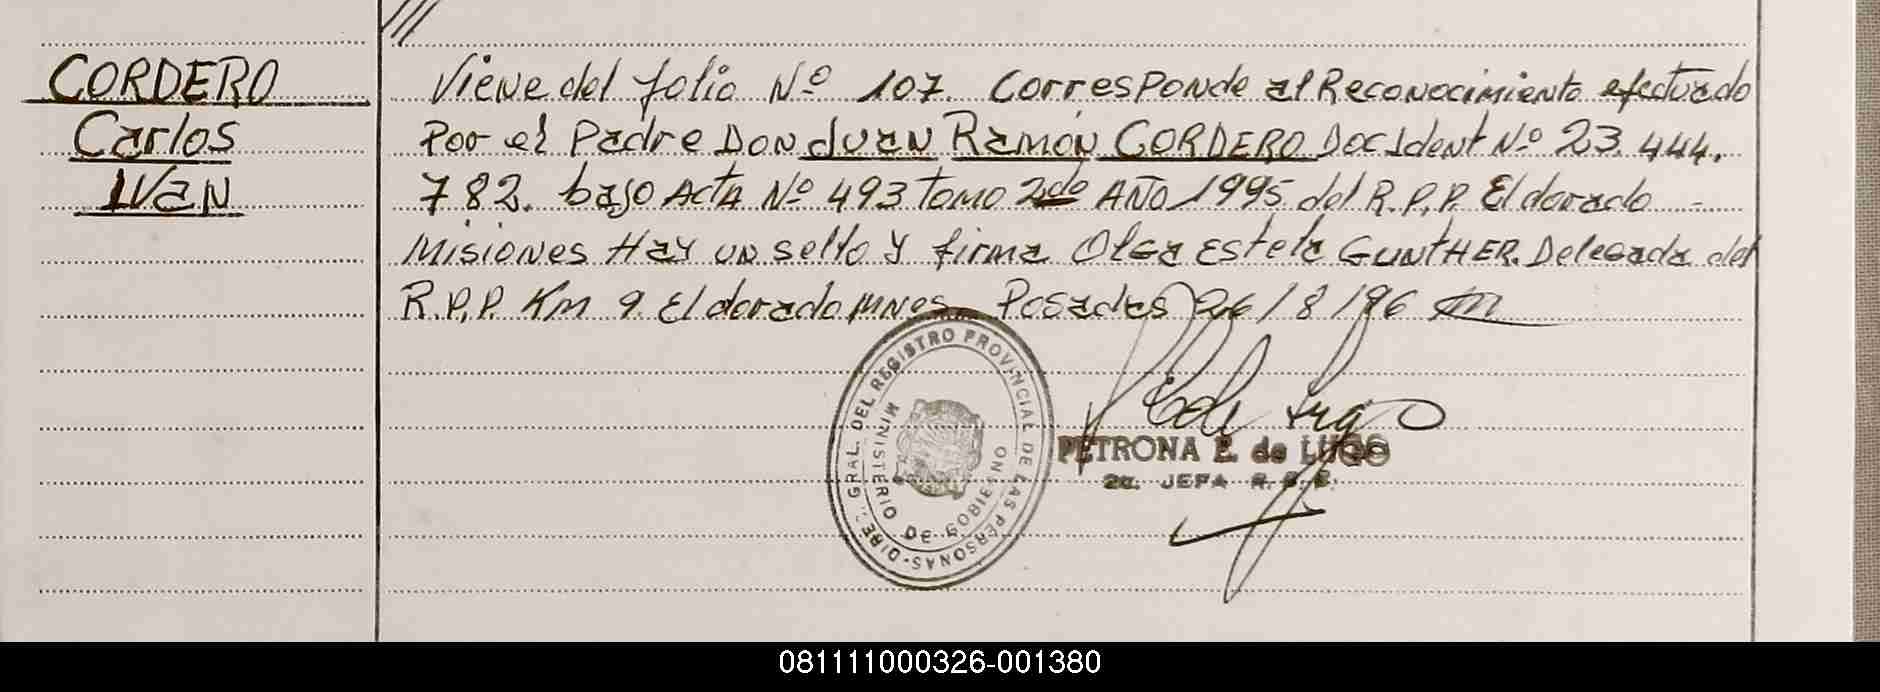 CORDERO
Carlos
IVAN
Viene del folio Nº 107. Corresponde al Reconocimiento efectuado
Por el Padre DON JUAN Ramón CORDERO Doc Ident Nº 23.444.
782. bajo Acta Nº 493 tomo 2do AÑO 1995 del R.P.P. Eldorado
Misiones Hay un sello y firma Olga Estela GUNTHER. Delegada del
R.P.P. Km 9. Eldorado MNes. Posadas 26/8/96
DIRE. GRAL. DEL REGISTRO PROVINCIAL DE LAS PERSONAS
MINISTERIO DE GOBIERNO
PETRONA E. de LUGO
2a. JEFA R.P.P.
081111000326-001380